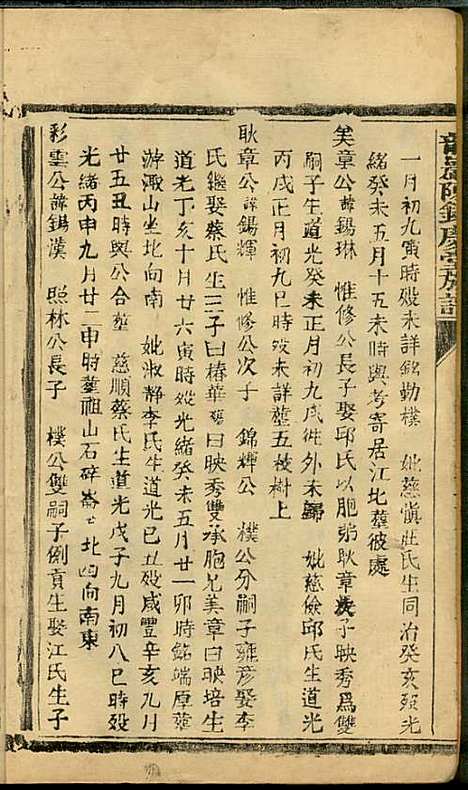 一月初九寅時歿未詳銘勤樸　妣慈慎莊氏生同治癸亥歿光
緒癸未五月十五未時與考寄居江北葬彼處
美章公諱錫琳　惟修公長子娶邱氏以胞弟耿章長子映秀為雙
嗣子生道光癸未正月初九戌徃外未歸　妣慈儉邱氏生道光
丙戌正月初九巳時歿未詳塟五枝樹上
耿章公諱錫輝　惟修公次子　錦輝公　樸公分嗣子雍彦娶李
氏繼娶蔡氏生三子曰椿華曰映秀雙承胞兄美章曰映培生
道光丁亥十月廿六寅時歿光緒癸未五月廿一卯時銘端厚葬
游溦山坐北向南　妣淑静李氏生道光己丑歿咸豐辛亥九月
廿五丑時與公合塟　慈順蔡氏生道光戊子九月初八巳時歿
光緒丙申九月廿二申時塟祖山石碎崙北向南東
彩雲公諱錫漢　照林公長子　樸公雙嗣子例貢生娶江氏生子